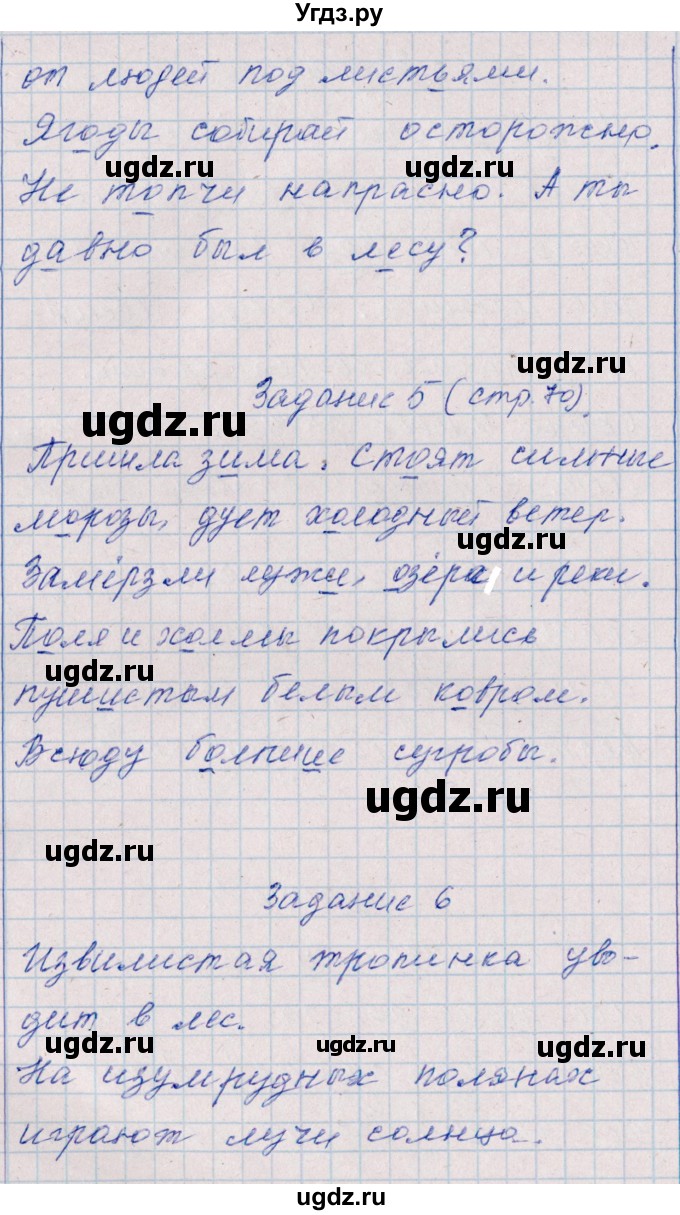 Угдз.ру
от людей под листьями.
Ягоды собирай осторожно.
ugdz.ru ugdz.ru
Не топчи напрасно. А ты
давно был в лесу?
ugdz.ru
Задание 5 (стр. 70).
ugdz.ru
Пришла зима. Стоят сильные
морозы, дует холодный ветер.
ugdz.ru
Замёрзли лужи, озёра и реки.
Поля и холмы покрылись
ugdz.ru
пушистым белым ковром.
Всюду большие сугробы.
ugdz.ru
ugdz.ru
Задание 6
Извилистая тропинка уво-
дит в лес.
ugdz.ru ugdz.ru ugdz.ru
На изумрудных полянах
играют лучи солнца.
ugdz.ru